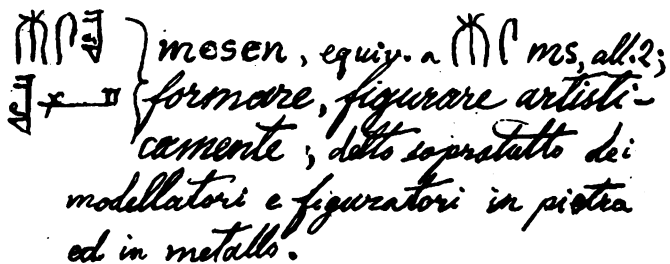 𓄟𓋴 mesen, equiv. a 𓄟𓋴 ms, all. 2;
formare, figurare artisti-
camente; detto sopratutto dei
modellatori e figuratori in pietra
ed in metallo.